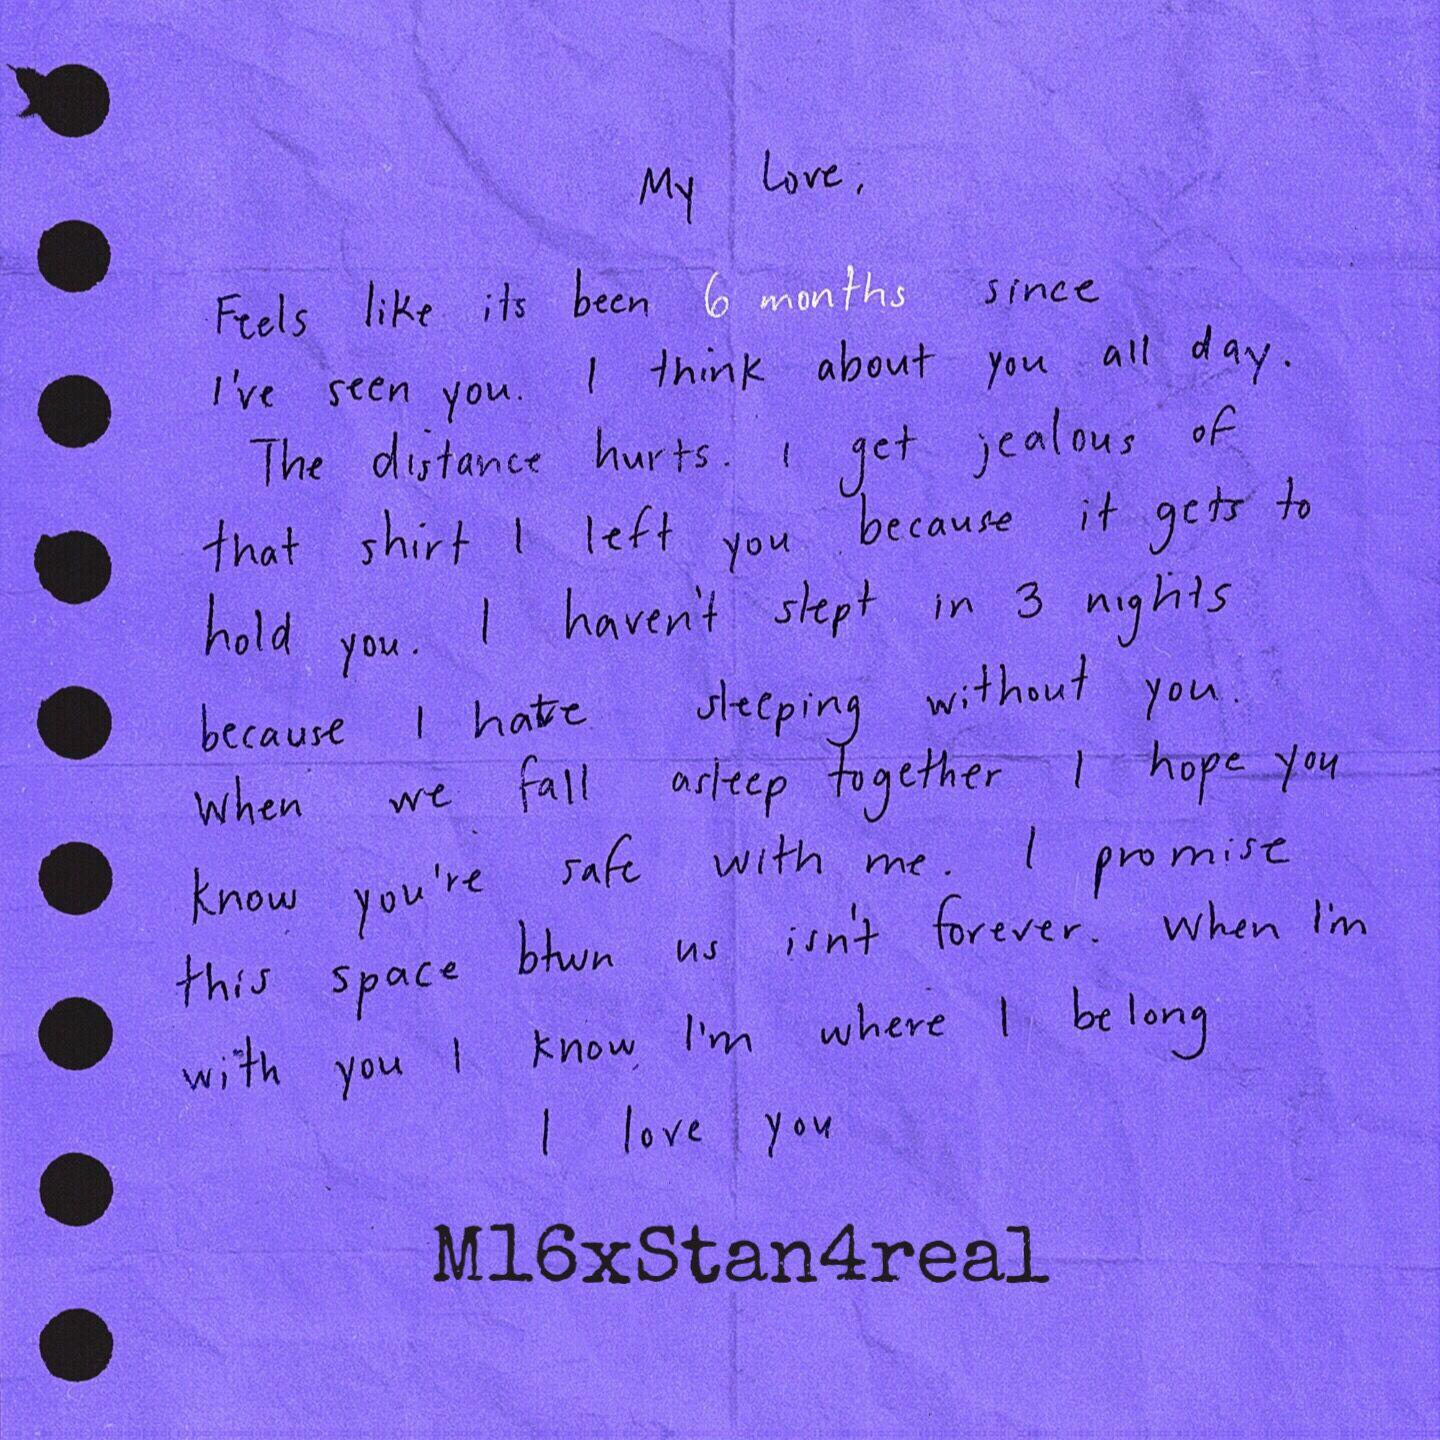 My Love,
Feels like its been 6 months since
I've seen you. I think about you all day.
The distance hurts. I get jealous of
that shirt I left you because it gets to
hold you. I haven't slept in 3 nights
because I hate sleeping without you.
When we fall asleep together I hope you
know you're safe with me. I promise
this space btwn us isn't forever. When I'm
with you I know I'm where I belong
I love you
M16xStan4real